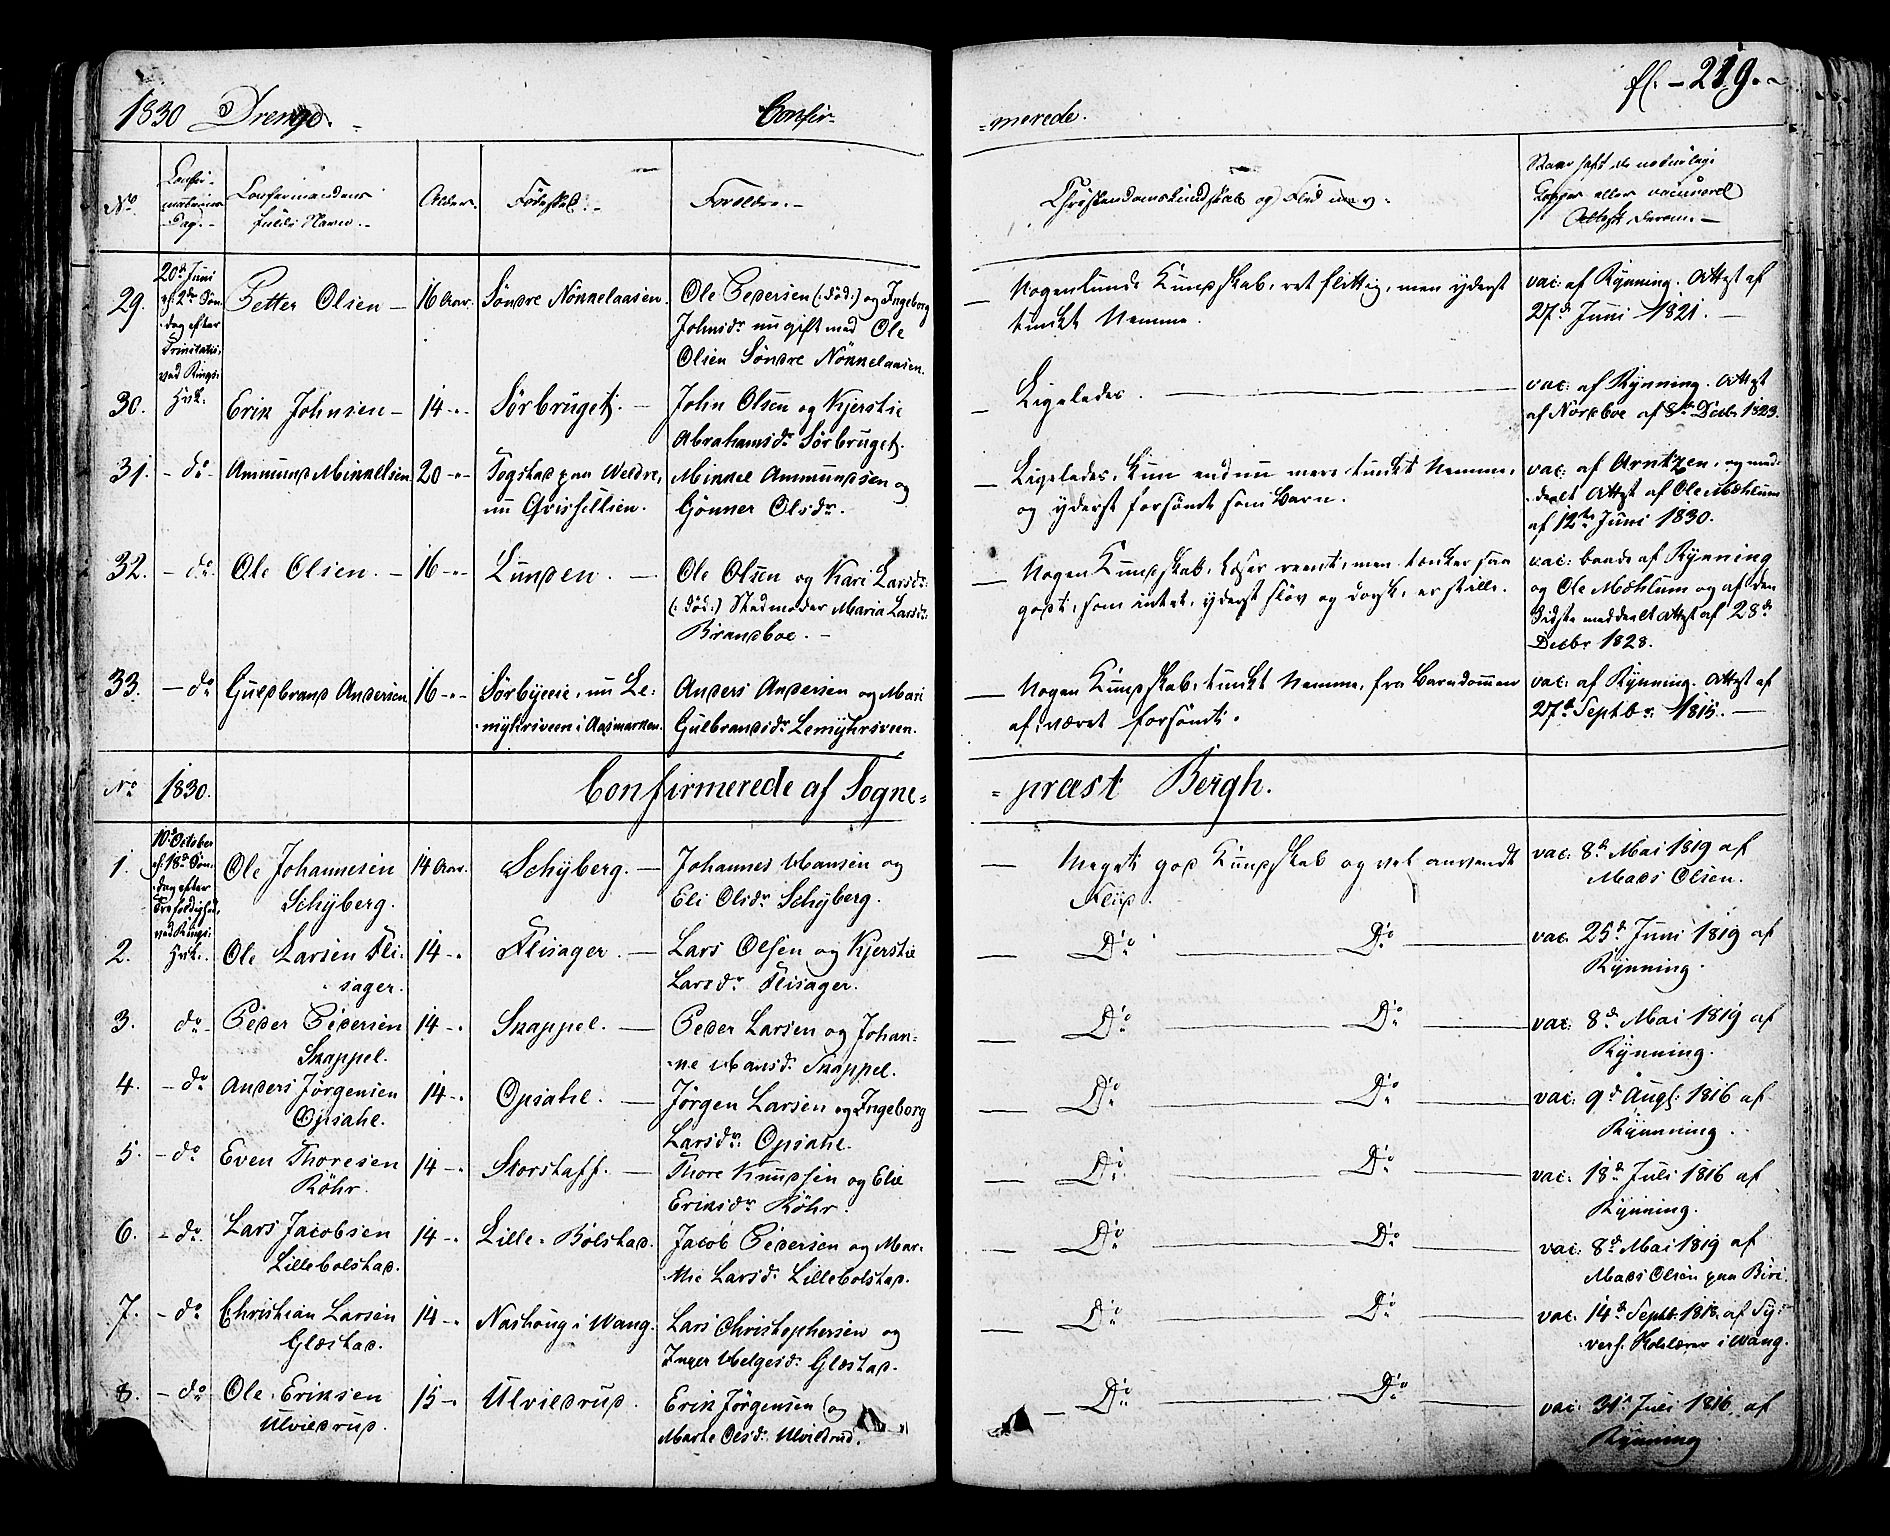 fl. - 219.
1830 Drenge. Confir-
-merede.
No. Confirmations Dag. Confirmandens fulde Navn. Alder. Fødested. Forældre. Christendomskundskab og Flid m. v. Naar havt de naturlige Kopper eller vaccineret Attest derom.
29. 20de Juni
Petter Olsen - 16 Aar. Søndre Nønnelaasen. Ole Pedersen (: død :) og Ingeborg
Johnsdr nu gift med Ole
Olsen Søndre Nønnelaasen.
Nogenlunde Kundskab, ret flittig, men yderst
tungt Nemme.
vac: af Rÿnning. Attest af
27de Juni 1821.
30. Erik Johnsen - 14 - Sørbruget. John Olsen og Kjerstie
Abrahamsdr Sørbruget.
Ligeledes.
vac: af Rÿnning. Attest
af Nordboe af 8de Decbr 1823.
31. - do Ammund Mikkelsen 20 - Togstad paa Weldre,
nu Qvisfeltien.
Mikkel Ammundsen og
Gønner Olsdr.
Ligeledes, kun endnu mere tungt Nemme,
og yderst forsømt som Barn.
vac: af Arntzen, og med-
deelt Attest af Ole Mæhlum
af 12te Juni 1830.
32. - do. Ole Olsen. - 16 - Lunden. Ole Olsen og Kari Larsdr:
(: død :) Stedmoder Maria Larsdr:
Brandboe.
Nogen Kundskab, læser reent, men tænker saa
godt, som intet, yderst sløv og dorsk, er stille.
vac: baade af Rÿnning
og Ole Mæhlum og af den
sidste meddeelt Attest af 28de
Decbr 1828.
33. - do Guldbrand Andersen 16 - Sørbÿeeie, nu Le-
mÿhrsveen i Aasmarken.
Anders Andersen og Mari
Gulbrandsdr Lemÿhrsveen.
Nogen Kundskab, tungt Nemme, fra Barndommen
af, været forsømt.
vac: af Rÿnning. Attest af
27de Septbr. 1815.
No 1830. Confirmerede af Sogne-
-præst Bergh.
1. 10de October
ef. 18de Søn-
dag efter
Trefoldighed,
ved Rings-
Ole Johannesen
Schÿberg.
14 Aar. Schÿberg. Johannes Hansen og
Eli Olsdr Schÿberg.
Meget god Kundskab og vel anvendt
Fliid.
vac: 8de Mai 1819 af
Mads Olsen.
2. Ole Larsen Fli-
sager.
14 - Flisager. Lars Olsen og Kjerstie
Larsdr Flisager.
Do Do
vac: 25de Juni 1819 af
Rÿnning.
3. do Peder Pedersen
Skappel.
14 - Skappel. Peder Larsen og Johan-
ne Hansdr Skappel.
Do Do
vac: 8de Mai 1819 af
Rÿnning.
4. - do Anders Jørgensen
Opsahl.
14 - Opsahl. Jørgen Larsen og Ingeborg
Larsdr: Opsahl.
Do Do
vac: 9de Aug: 1816 af
Rÿnning.
5. - do Even Thoresen
Röhr.
14 - Storstaff. Thore Knudsen og Elie
Eriksdr Röhr.
Do Do
vac: 18de Juli 1816 af
Rÿnning.
6. - do. Lars Jacobsen
Lillebolstad.
14 - Lille-Bolstad. Jacob Pedersen og Mar-
the Larsdr Lillebolstad.
Do Do
vac: 8de Mai 1819 af
Mads Olsen paa Biri
7. - do Christian Larsen
Glæstad.
14 - Nashoug i Wang. Lars Christophersen og
Inger Helgesdr Glæstad.
Do Do
vac: 14de Septbr 1818 af Sÿ-
vers. i Wang.
8. - do Ole Eriksen
Ulvildrud.
15 - Ulvildrud. Erik Jørgensen og
Marte Olsdr: Ulvildrud.
Do Do
vac: 31te Juli 1816 af
Rÿnning.